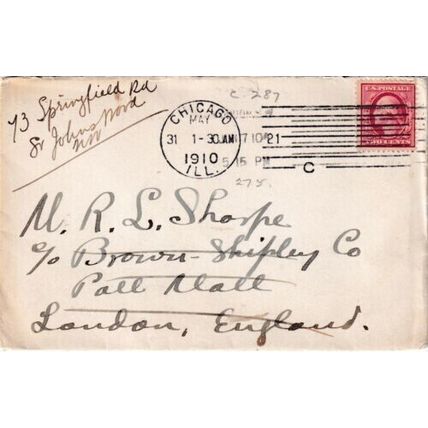 73 Springfield Rd
St Johns Wood
NW
C. 287
CHICAGO
MAY
31 1-30AM
1910
ILL.
7 10 21
5 15 PM
C
275.
U.S. POSTAGE
TWO CENTS
M. R. L. Sharpe
c/o Brown-Shipley Co
Pall Mall
London, England.